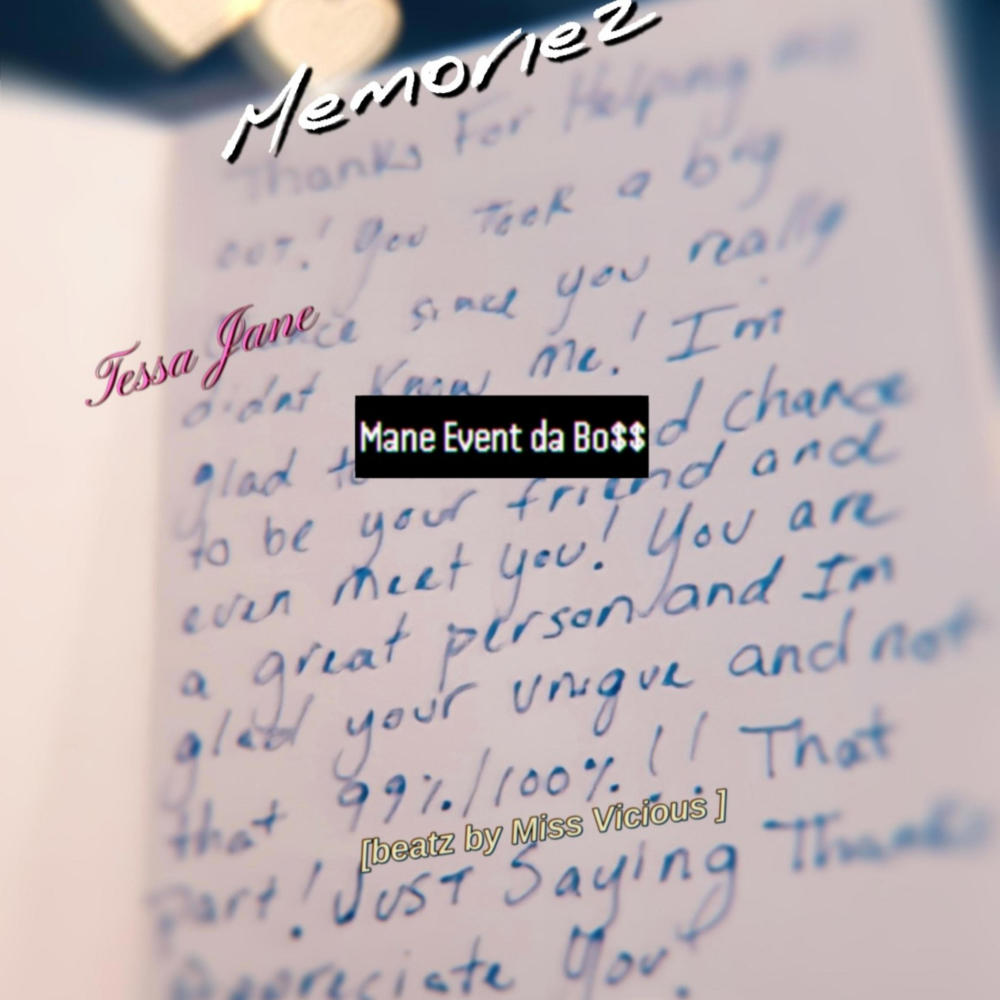 Memoriez
Thanks For Helping me
out! you Took a big
Tessa Jane
since you really
didnt Know me! I'm
Mane Event da Bo$$
glad to d chance
to be your friend and
even meet you! You are
a great person and Im
glad your uniqve and not
that 99%/100%!! That
[beatz by Miss Vicious ]
part! Just Saying Thanks
Appreciate You!